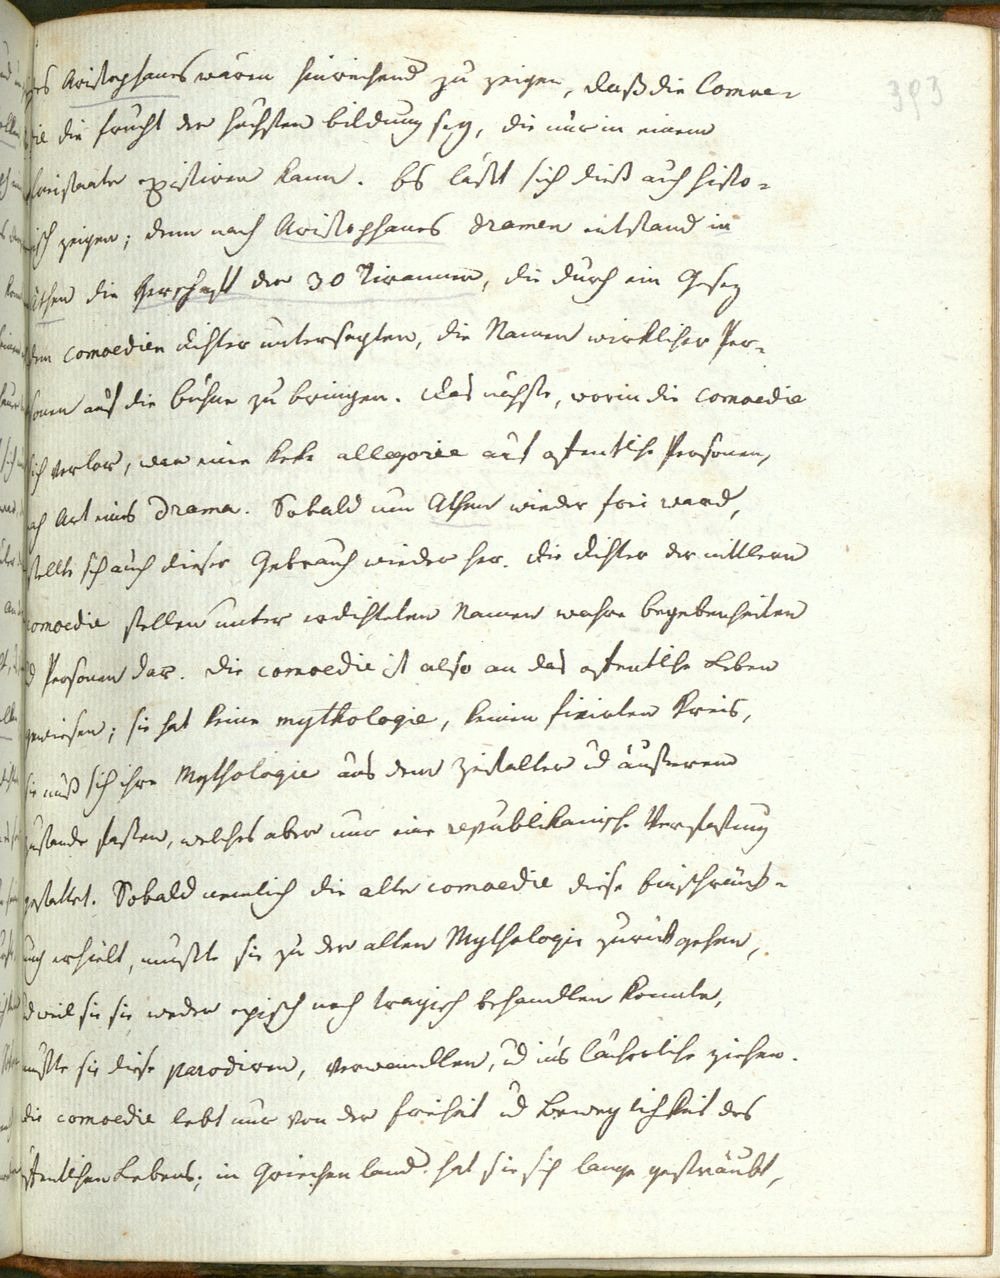 393
des Aristophanes wären hinreichend zu zeigen, daß die Comoe-
die die frucht der höchsten bildung sey, die nur in einem
freistaate existiren kann. Es läßt sich dieß auch histo-
risch zeigen; denn nach Aristophanes dramen entstand in
Athen die Herschaft der 30 Tirannen, die durch ein Gesez
den comoedien dichter untersagten, die Namen wirklicher Per-
sonen auf die bühne zu bringen. Das nächste, worin die comoedie
sich verlor, war eine keke allegorie auf öfentliche Personen,
nach Art eines Drama. Sobald nun Athen wieder frei ward,
stellte sich auch dieser Gebrauch wieder her. die dichter der mittlern
comoedie stellen unter erdichteten Namen wahre begebenheiten
ud Personen dar. die comoedie ist also an das öfentliche Leben
gewiesen; sie hat keine mythologie, keinen fixirten Kreis,
sie muß sich ihre Mythologie aus dem zeitalter ud äußerem
zustande fassen, welches aber nur eine republikanische Verfassung
gestattet. Sobald nemlich die alte comoedie diese Einschränk-
ung erhielt, mußte sie zu der alten Mythologie zurükgehen,
ud weil sie sie weder episch noch tragisch behandlen konnte,
mußte sie diese parodiren, verwandlen, ud ins lächerliche ziehen.
die comoedie lebt nur von der freiheit ud Beweglichkeit des
öfentlichen Lebens; in Griechenland hat sie sich lange gesträubt,